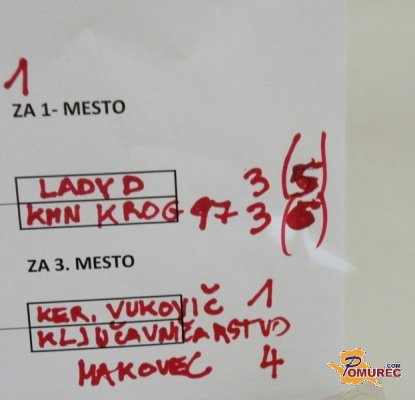 1
ZA 1- MESTO
LADY D 3 (5)
KMN KROG 97 3 (6)
ZA 3. MESTO
KER. VUKOVIČ 1
KLJUČAVNIČARSTVO
MAKOVEC 4
POMUREC.COM